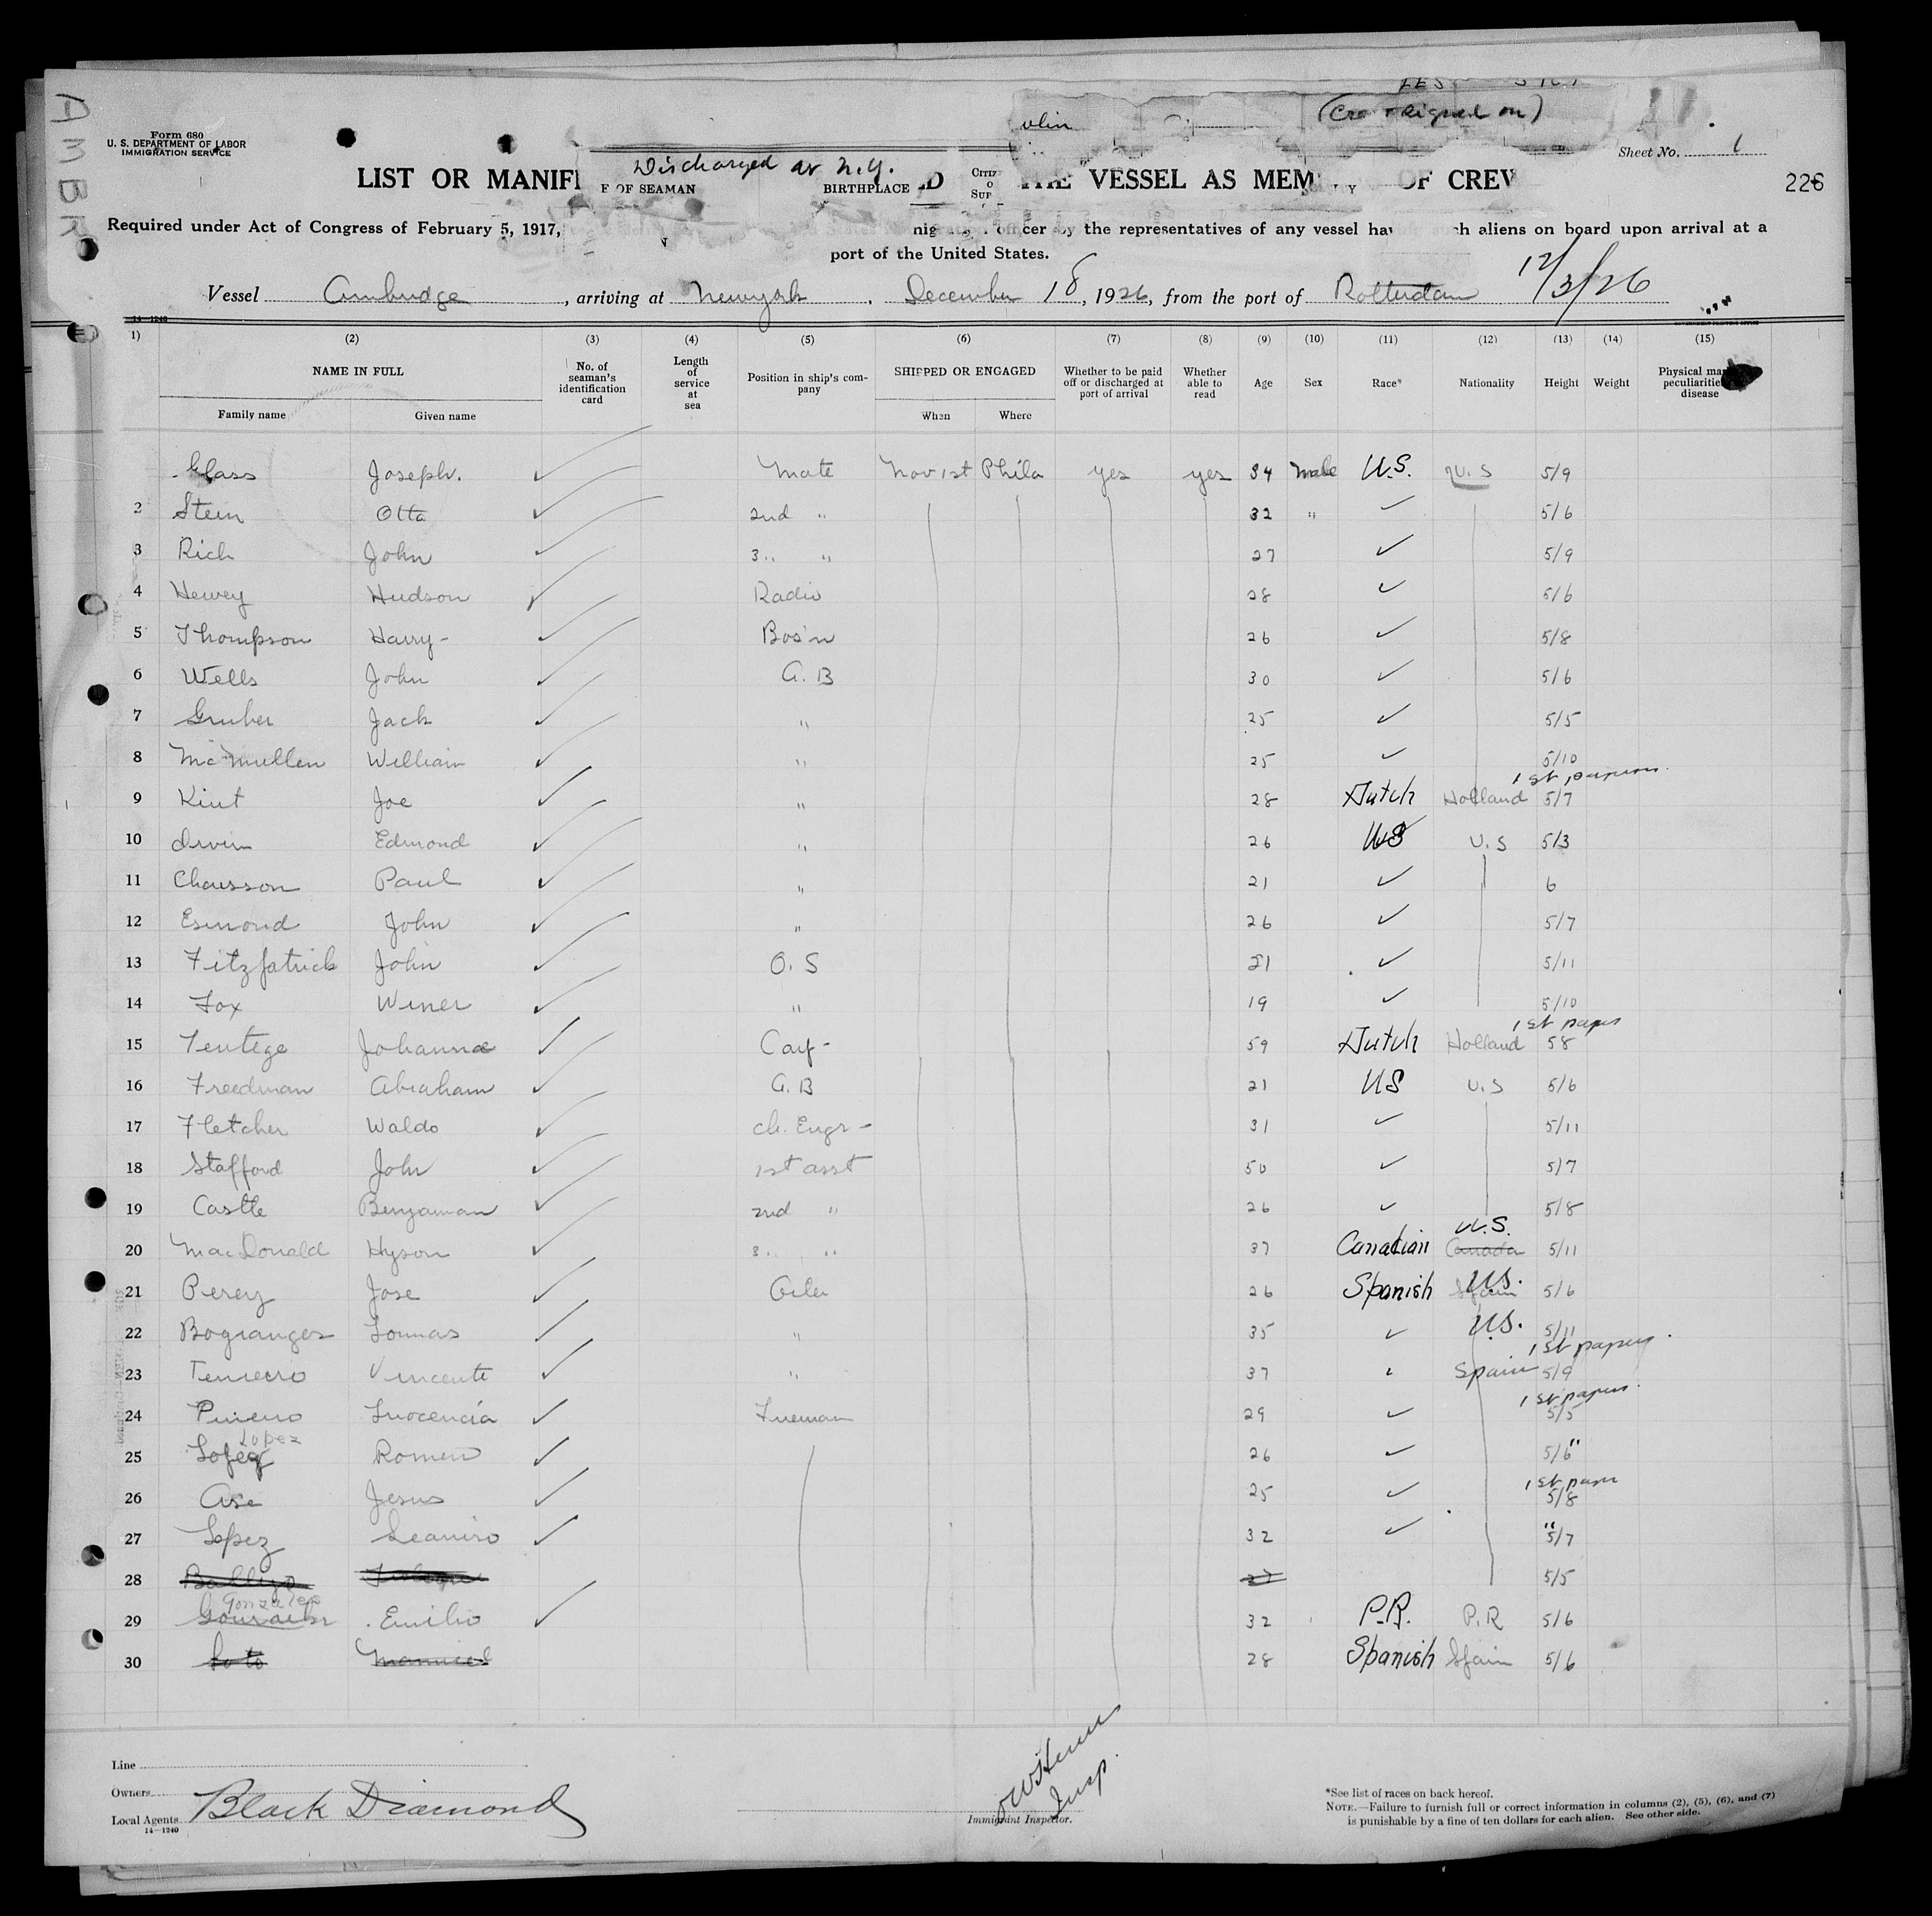 AMBR
(Cr signed on)
Form 680
U. S. DEPARTMENT OF LABOR
IMMIGRATION SERVICE
Sheet No. 1
Discharged at N.Y.
LIST OR MANIF E OF SEAMAN BIRTHPLACE THE VESSEL AS MEM OF CREW
226
Required under Act of Congress of February 5, 1917, officer by the representatives of any vessel having such aliens on board upon arrival at a
port of the United States.
Vessel Cambridge, arriving at New York, December 18, 1926, from the port of Rotterdam 12/3/26
14—1240
(1) (2) (3) (4) (5) (6) (7) (8) (9) (10) (11) (12) (13) (14) (15)
NAME IN FULL No. of seaman's identification card Length of service at sea Position in ship's company SHIPPED OR ENGAGED Whether to be paid off or discharged at port of arrival Whether able to read Age Sex Race* Nationality Height Weight Physical marks, peculiarities disease
Family name Given name When Where
Glass Joseph. Mate Nov 1st Phila yes yes 34 Male U.S. U.S 5/9
2 Stein Otto 2nd " 32 " ✓ 5/6
3 Rich John 3 " " 27 ✓ 5/9
4 Hewey Hudson Radio 28 ✓ 5/6
5 Thompson Harry- Bos'n 26 ✓ 5/8
6 Wells John A.B 30 ✓ 5/6
7 Gruber Jack " 25 ✓ 5/5
8 McMullen William " 25 ✓ 5/10
1st papers
9 Kint Joe " 28 Dutch Holland 5/7
10 Irvin Edmond " 26 US U.S 5/3
11 Chausson Paul " 21 ✓ 6
12 Esmond John " 26 ✓ 5/7
13 Fitzpatrick John O.S 21 ✓ 5/11
14 Fox Winer " 19 ✓ 5/10
1st paper
15 Tentege Johanna 59 Dutch Holland 58
16 Freedman Abraham A.B 21 US U.S 5/6
17 Fletcher Waldo ch. Engr- 31 ✓ 5/11
18 Stafford John 1st asst 50 ✓ 5/7
19 Castle Benjaman 2nd " 26 ✓ 5/8
U.S.
20 MacDonald Hyson 3 " " 37 Canadian Canada 5/11
21 Perez Jose Oiler 26 Spanish Spain U.S. 5/6
22 Bogranges " 35 ✓ U.S. 5/11
1st papers
23 Teneiro Vincente " 37 ✓ Spain 5/9
1st papers
24 Pineiro Inocencia Fireman 29 ✓ 5/5
Lopez
25 Lopez Romen 26 ✓ 5/6 "
1st paper
26 Ase Jesus 25 ✓ 5/8
27 Lopez Leaniro 32 ✓ " 5/7
28 27 5/5
Gonzales
29 Emilio 32 P.R. P.R 5/6
30 Soto Manuel 28 Spanish Spain 5/6
Line
Owners
Local Agents Black Diamond
14—1240
Insp.
Immigrant Inspector.
*See list of races on back hereof.
NOTE.—Failure to furnish full or correct information in columns (2), (5), (6), and (7)
is punishable by a fine of ten dollars for each alien. See other side.